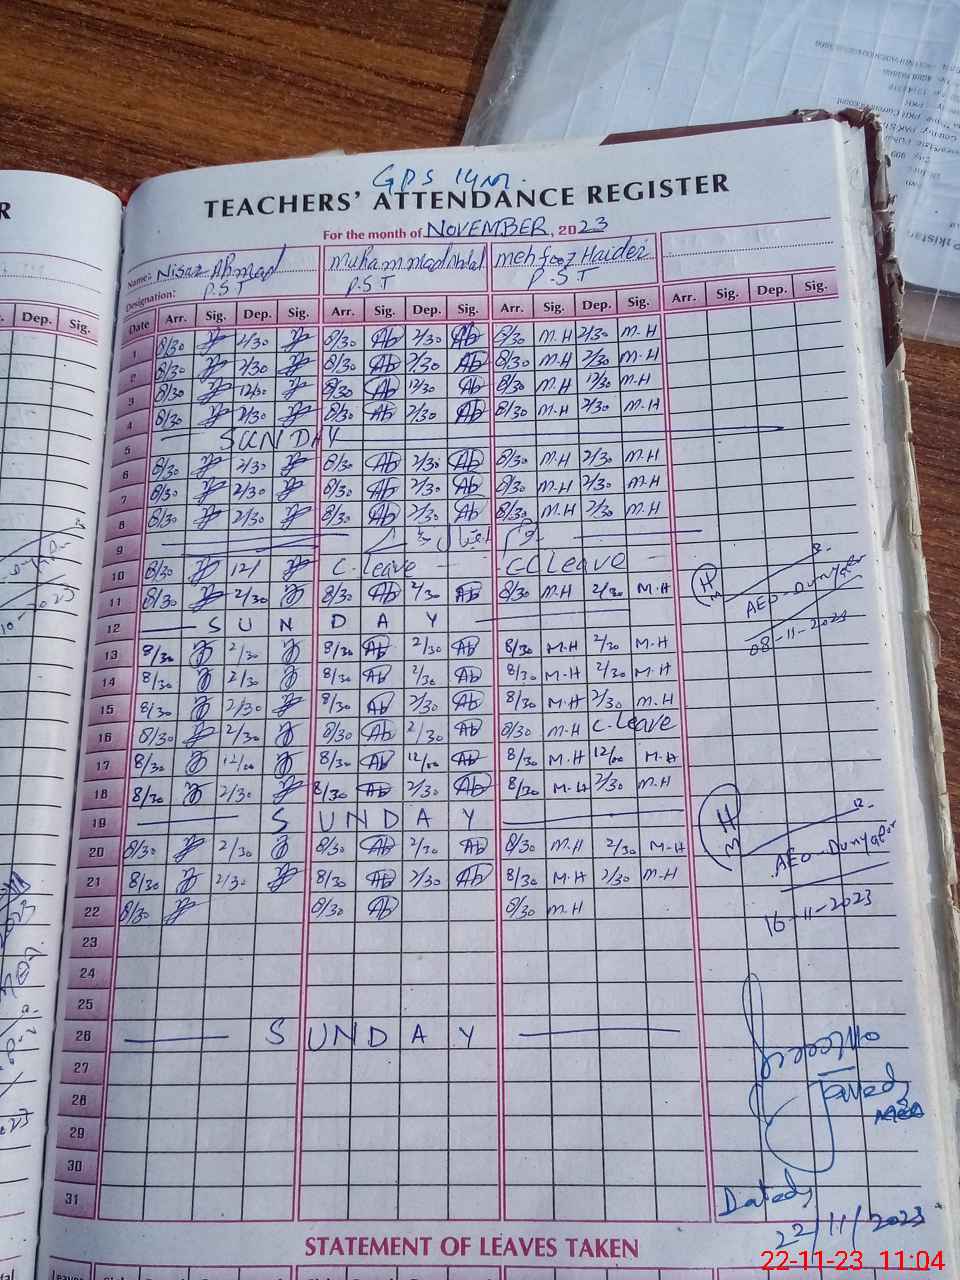 GPS 14M.
TEACHERS' ATTENDANCE REGISTER
For the month of NOVEMBER, 2023
Name: Nisar Ahmad Muhammad Mehfooz Haider
Designation: P.S.T P.S.T P.S.T
Date Arr. Sig. Dep. Sig. Arr. Sig. Dep. Sig. Arr. Sig. Dep. Sig. Arr. Sig. Dep. Sig.
1 8/30 2/30 8/30 Ab 2/30 Ab 8/30 M.H 2/30 M.H
2 8/30 2/30 8/30 Ab 2/30 Ab 8/30 M.H 2/30 M.H
3 8/30 12/30 8/30 Ab 12/30 Ab 8/30 M.H 12/30 M.H
4 8/30 2/30 8/30 Ab 2/30 Ab 8/30 M.H 2/30 M.H
5 SUNDAY
6 8/30 2/30 8/30 Ab 2/30 Ab 8/30 M.H 2/30 M.H
7 8/30 2/30 8/30 Ab 2/30 Ab 8/30 M.H 2/30 M.H
8 8/30 2/30 8/30 Ab 2/30 Ab 8/30 M.H 2/30 M.H
9
10 8/30 C.Leave C Leave
11 8/30 2/30 8/30 Ab 2/30 Ab 8/30 M.H 2/30 M.H
12 SUNDAY
13 8/30 2/30 8/30 Ab 2/30 Ab 8/30 M.H 2/30 M.H
14 8/30 2/30 8/30 Ab 2/30 Ab 8/30 M.H 2/30 M.H
15 8/30 2/30 8/30 Ab 2/30 Ab 8/30 M.H 2/30 M.H
16 8/30 2/30 8/30 Ab 2/30 Ab 8/30 M.H C.Leave
17 8/30 12/00 8/30 Ab 12/00 Ab 8/30 M.H 12/00 M.H
18 8/30 2/30 8/30 Ab 2/30 Ab 8/30 M.H 2/30 M.H
19 SUNDAY
20 8/30 2/30 8/30 Ab 2/30 Ab 8/30 M.H 2/30 M-H
21 8/30 2/30 8/30 Ab 2/30 Ab 8/30 M.H 2/30 M.H
22 8/30 8/30 Ab 8/30 M.H
23
24
25
26 SUNDAY
27
28
29
30
31
AEO-Dunyapur
08-11-2023
AEO-Dunyapur
16-11-2023
Javed
Dated,
22/11/2023
STATEMENT OF LEAVES TAKEN
22-11-23 11:04
R
Dep. Sig.